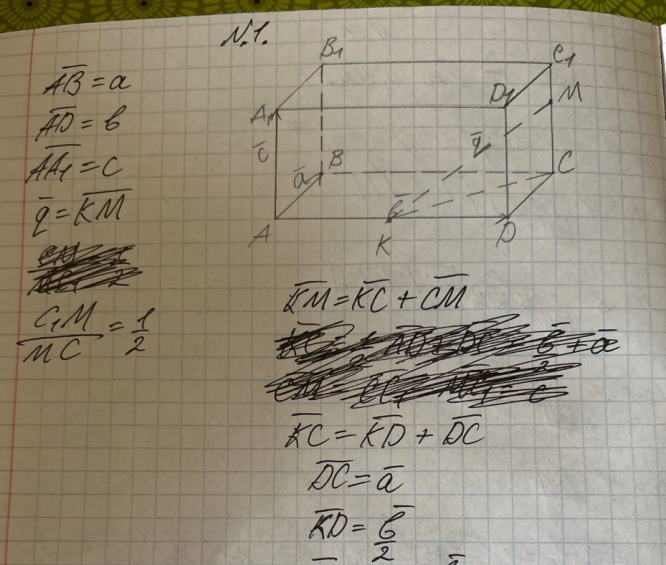 N.1.
A͞B͞ = a
A͞D͞ = b
A͞A͞₁͞ = c
q̅ = K͞M͞
C₁M / MC = 1/2
B₁
C₁
A₁
D₁
M
c̅
q̅
a̅
B
C
b̅
A
K
D
K͞M͞ = K͞C͞ + C͞M͞
K͞C͞ = K͞D͞ + D͞C͞
D͞C͞ = a̅
K͞D͞ = b̅/2